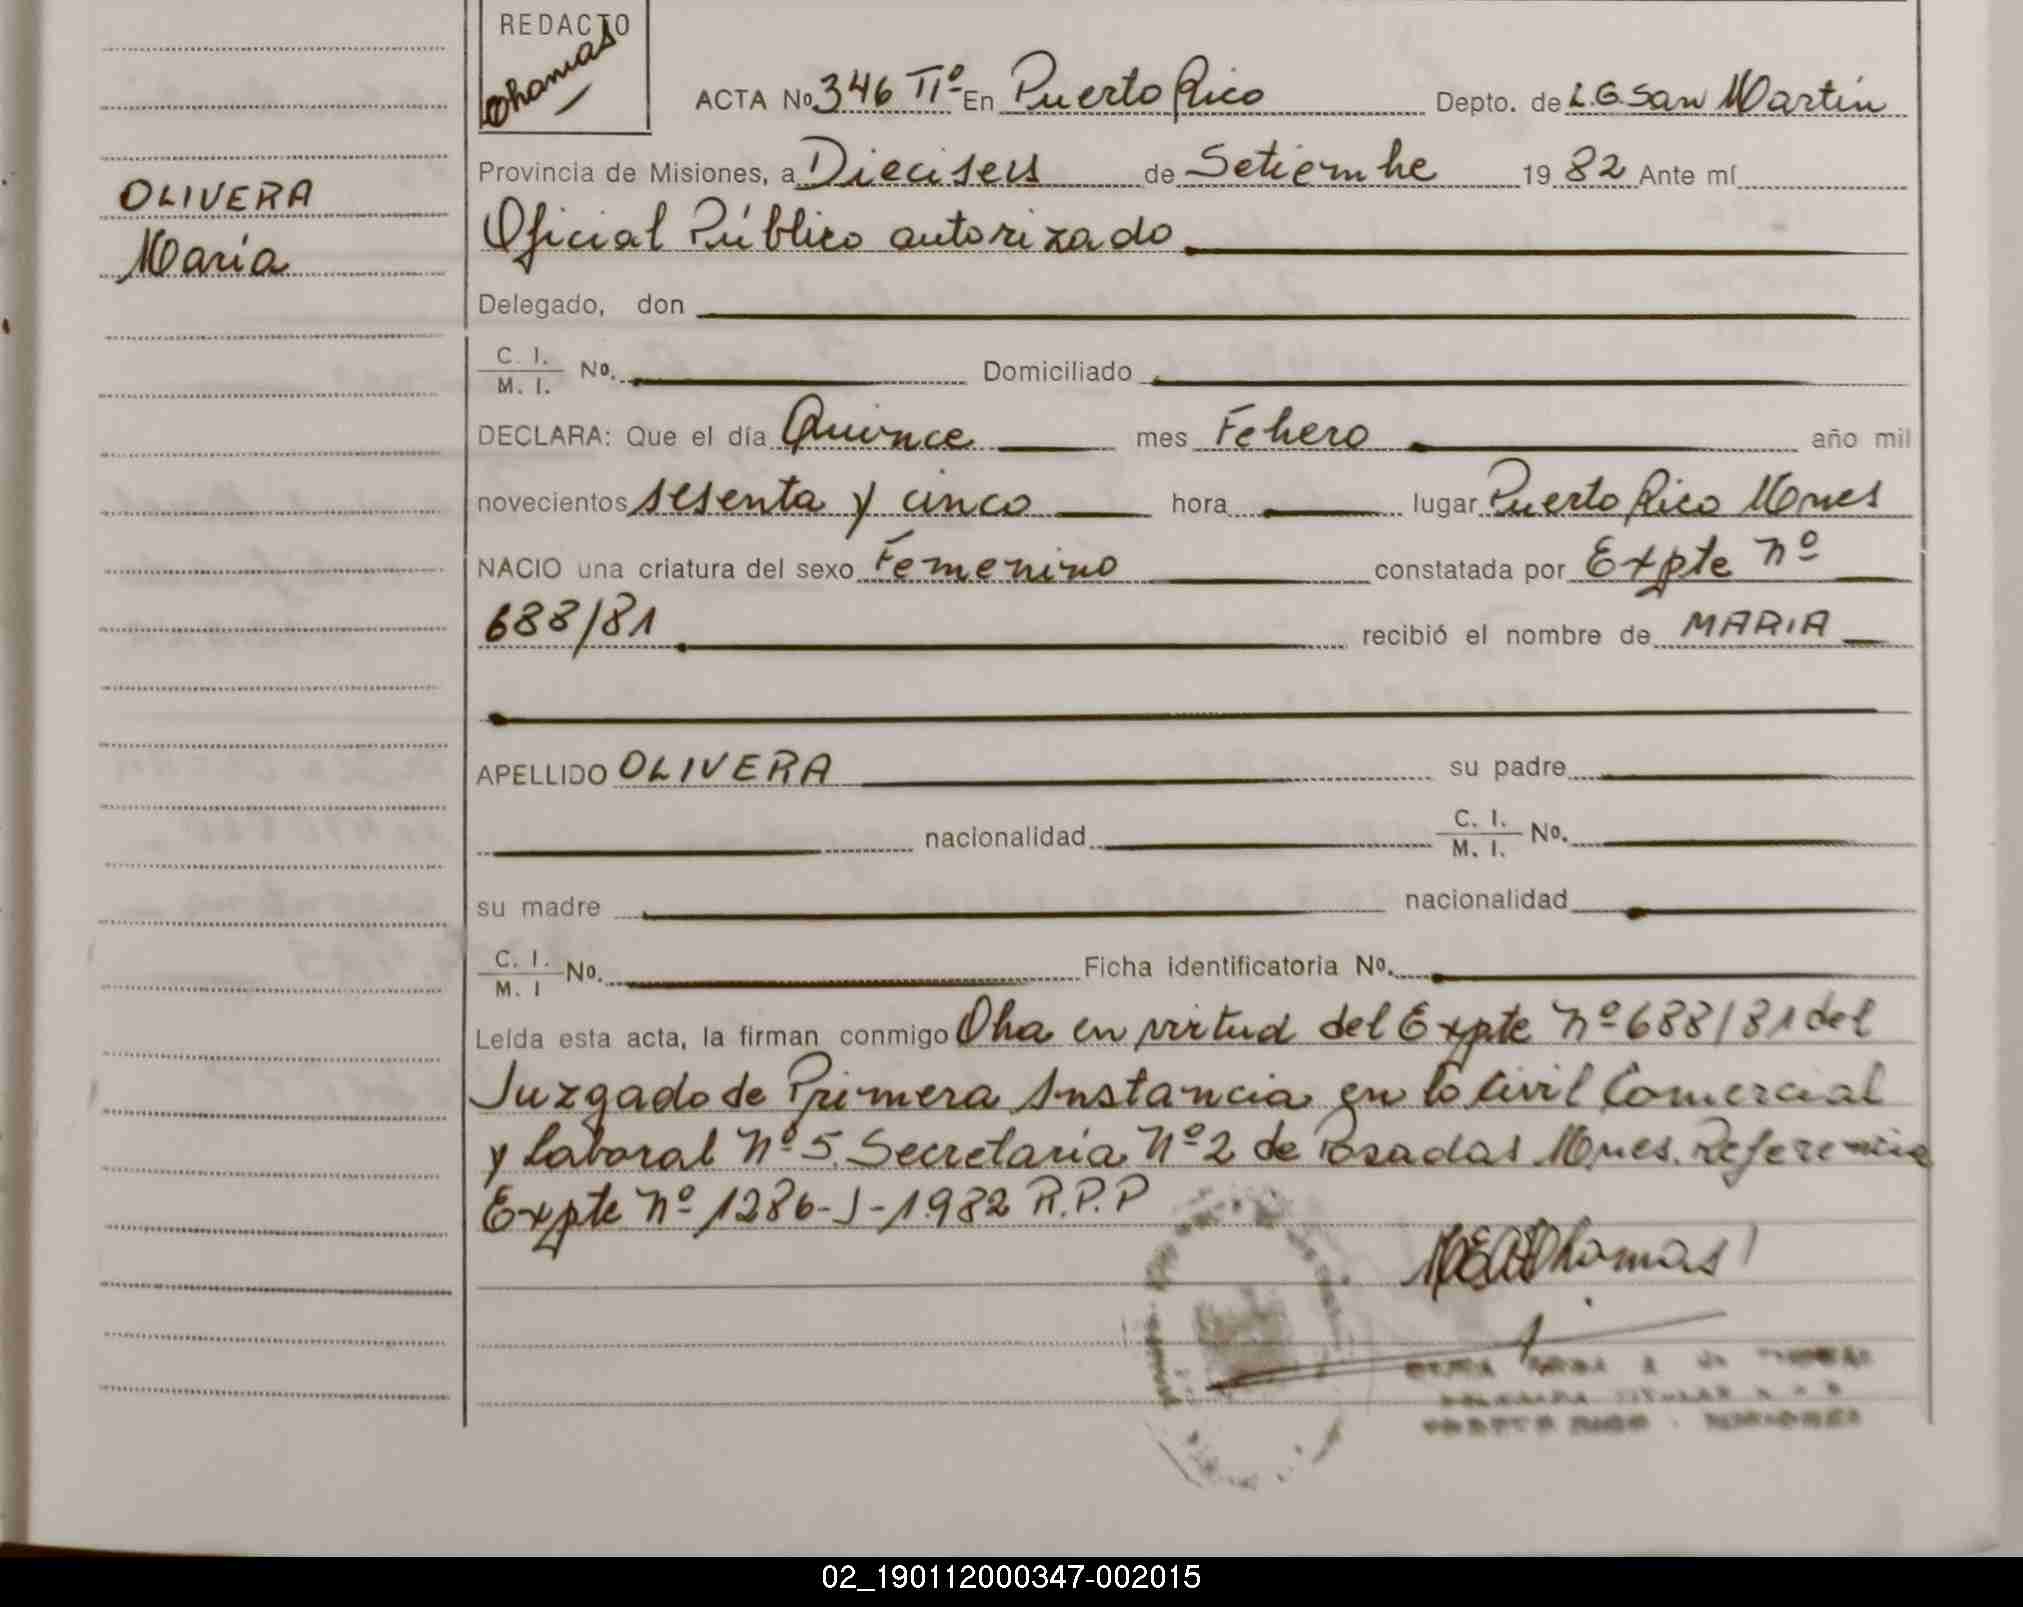 REDACTO
Thomas
ACTA No 346 TIº En Puerto Rico Depto. de L.G. San Martín
Provincia de Misiones, a Dieciseis de Setiembre 19 82 Ante mí
OLIVERA
María
Oficial Público autorizado
Delegado, don
C. I.
M. I. No. Domiciliado
DECLARA: Que el día Quince mes Febero año mil
novecientos sesenta y cinco hora lugar Puerto Rico Mnes
NACIO una criatura del sexo Femenino constatada por Expte Nº
688/81 recibió el nombre de MARIA
APELLIDO OLIVERA su padre
nacionalidad C. I.
M. I. No.
su madre nacionalidad
C. I.
M. I No. Ficha identificatoria No.
Leída esta acta, la firman conmigo Oha en virtud del Expte Nº 688/81 del
Juzgado de Primera Instancia en lo Civil Comercial
y laboral Nº 5. Secretaría Nº 2 de Posadas Mnes. Referencia
Expte Nº 1286-J-1982 R.P.P
Thomas
02_190112000347-002015